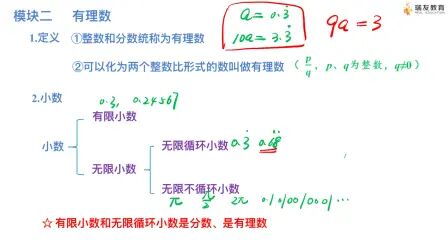 模块二 有理数
瑞友教育
a = 0.3̇
10a = 3.3̇
9a = 3
1.定义 ①整数和分数统称为有理数
②可以化为两个整数比形式的数叫做有理数（p/q，p、q为整数，q≠0）
2.小数
0.3, 0.24567
有限小数
小数
无限循环小数 0.3̇ 0.6̇8̇
无限小数
无限不循环小数
π π/2 2π 0.1010010001…
☆ 有限小数和无限循环小数是分数、是有理数